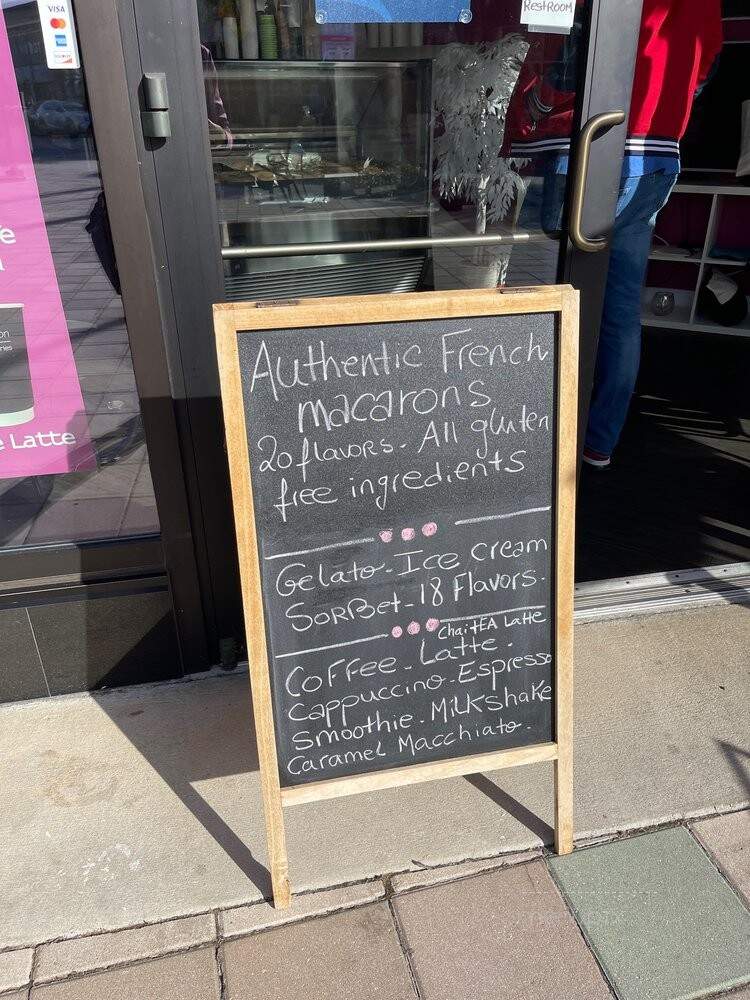 VISA
DISCOVER
RESTROOM
e Latte
Authentic French
macarons
20 flavors - All gluten
free ingredients
Gelato - Ice cream
SorBet - 18 Flavors.
Chai tEA Latte
Coffee - Latte -
Cappuccino - Espresso
Smoothie - Milkshake
Caramel Macchiato.